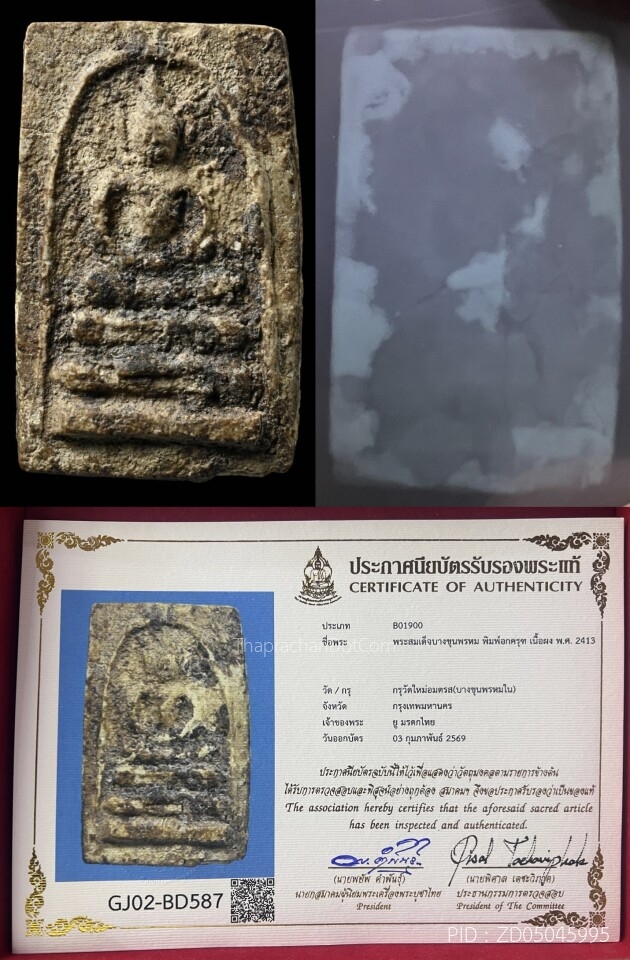 ประกาศนียบัตรรับรองพระแท้
CERTIFICATE OF AUTHENTICITY
ประเภท B01900
ชื่อพระ พระสมเด็จบางขุนพรหม พิมพ์อกครุฑ เนื้อผง พ.ศ. 2413
วัด / กรุ กรุวัดใหม่อมตรส(บางขุนพรหมใน)
จังหวัด กรุงเทพมหานคร
เจ้าของพระ ยู มรดกไทย
วันออกบัตร 03 กุมภาพันธ์ 2569
ประกาศนียบัตรฉบับนี้ให้ไว้เพื่อแสดงว่าวัตถุมงคลตามรายการข้างต้น
ได้รับการตรวจสอบและพิสูจน์อย่างถูกต้อง สมาคมฯ จึงขอประกาศรับรองว่าเป็นของแท้
The association hereby certifies that the aforesaid sacred article
has been inspected and authenticated.
(นายพยัพ คำพันธุ์) (นายพิศาล เตชะวิภาค)
นายกสมาคมผู้นิยมพระเครื่องพระบูชาไทย ประธานกรรมการตรวจสอบ
President President of The Committee
GJ02-BD587
PID : ZD05045995